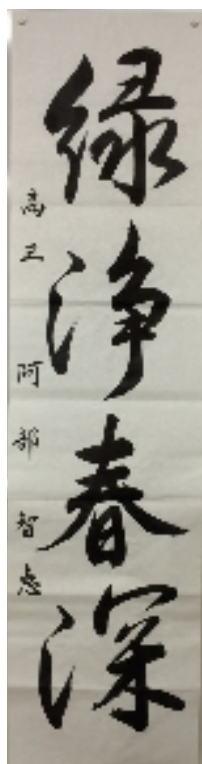 緑浄春深
高三 阿部智恵